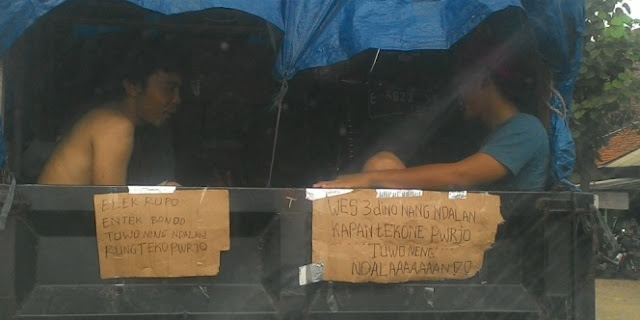 ELEK RUPO
ENTEK BONDO
TUWO NING NDALAN
RUNG TEKO PWRJO
WES 3 dino NANG NDALAN
KAPAN TEKONE PWRJO
TUWO NENG
NDALAAAAAAANDO